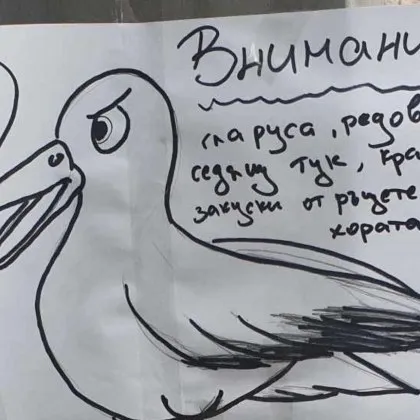 Внимани
гларуса, редов
седящ тук, кра
закуски от ръцете
хората